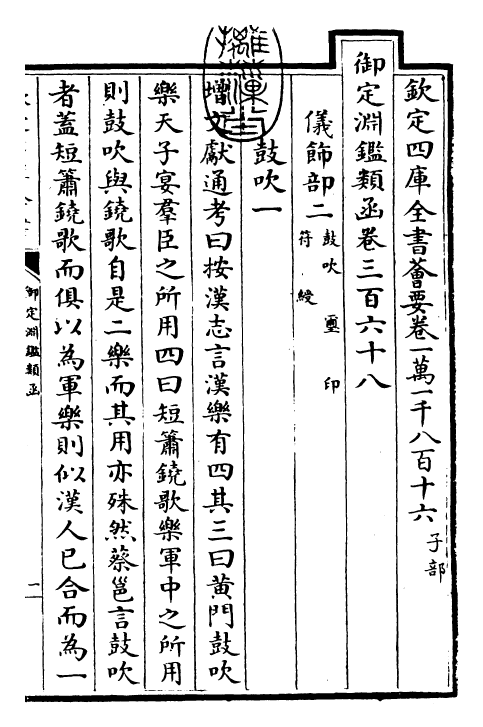 欽定四庫全書薈要卷一萬一千八百十六 子部
御定淵鑑類函卷三百六十八
儀飾部二 鼓吹 璽 印 符 綬
鼓吹一
增文獻通考曰按漢志言漢樂有四其三曰黄門鼓吹
樂天子宴羣臣之所用四曰短簫鐃歌樂軍中之所用
則鼓吹與鐃歌自是二樂而其用亦殊然蔡邕言鼓吹
者蓋短簫鐃歌而俱以為軍樂則似漢人已合而為一
御定淵鑑類函